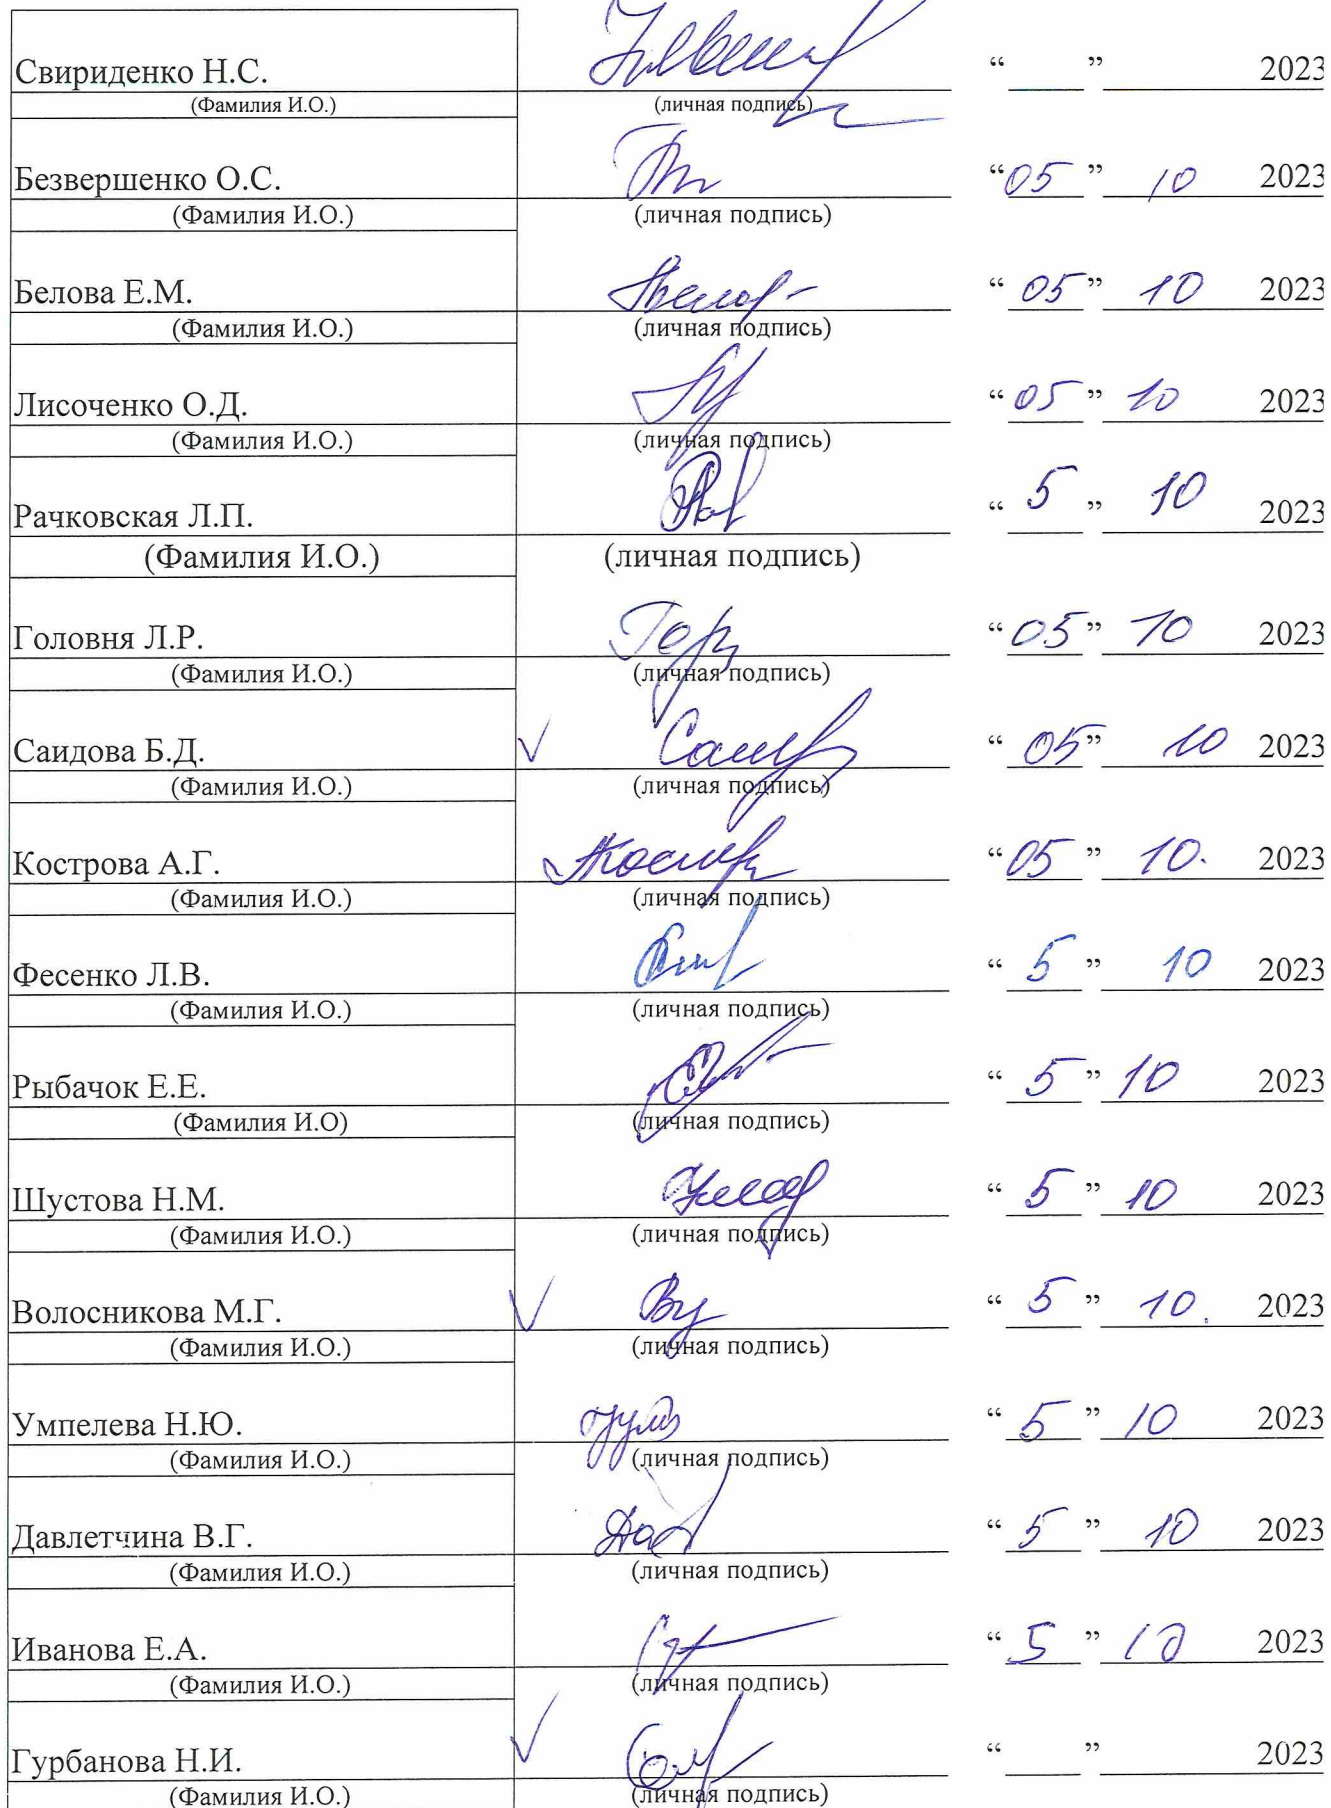 Свириденко Н.С. “ ” 2023
(Фамилия И.О.) (личная подпись)
Безвершенко О.С. “05” 10 2023
(Фамилия И.О.) (личная подпись)
Белова Е.М. “05” 10 2023
(Фамилия И.О.) (личная подпись)
Лисоченко О.Д. “05” 10 2023
(Фамилия И.О.) (личная подпись)
Рачковская Л.П. “5” 10 2023
(Фамилия И.О.) (личная подпись)
Головня Л.Р. “05” 10 2023
(Фамилия И.О.) (личная подпись)
Саидова Б.Д. “05” 10 2023
(Фамилия И.О.) (личная подпись)
Кострова А.Г. “05” 10. 2023
(Фамилия И.О.) (личная подпись)
Фесенко Л.В. “5” 10 2023
(Фамилия И.О.) (личная подпись)
Рыбачок Е.Е. “5” 10 2023
(Фамилия И.О) (личная подпись)
Шустова Н.М. “5” 10 2023
(Фамилия И.О.) (личная подпись)
Волосникова М.Г. “5” 10. 2023
(Фамилия И.О.) (личная подпись)
Умпелева Н.Ю. “5” 10 2023
(Фамилия И.О.) (личная подпись)
Давлетчина В.Г. “5” 10 2023
(Фамилия И.О.) (личная подпись)
Иванова Е.А. “5” 10 2023
(Фамилия И.О.) (личная подпись)
Гурбанова Н.И. “ ” 2023
(Фамилия И.О.) (личная подпись)